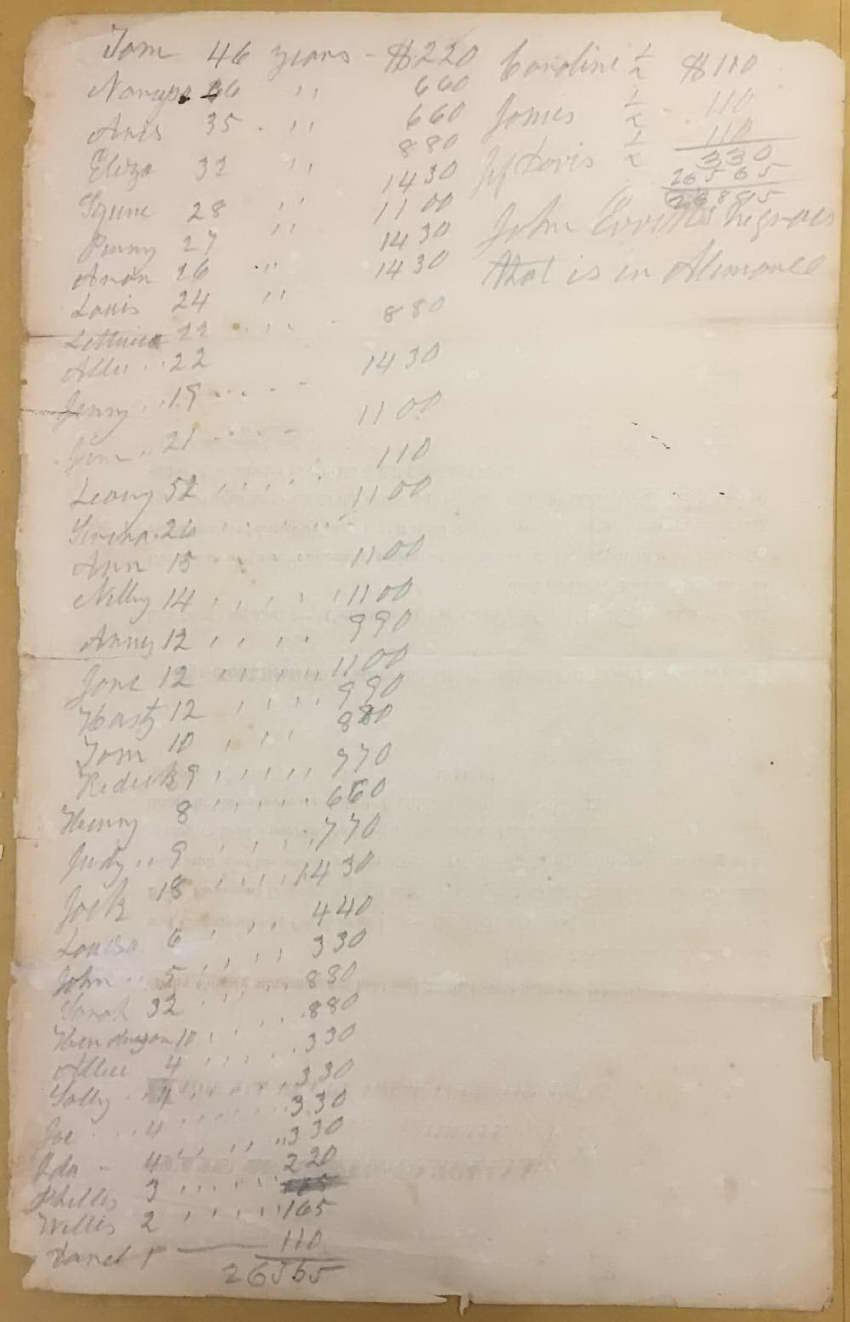 Tom 46 years - $220
Nancy 46 " 660
Anis 35 " 660
Eliza 32 " 880
28 " 1430
Penny 27 " 1100
16 " 1430
Louis 24 " 1430
Lettuce 22 " 880
Alle 22 1430
Jenny 19 " 1100
Jim 21 " 110
Leany 52 " 1100
26 "
Ann 15 " 1100
Nelly 14 " 1100
Anny 12 " 990
Jane 12 " 1100
Hasty 12 " 990
Tom 10 " 880
Redick 9 " 770
Henny 8 " 660
Judy 9 " 770
Jack 18 " 1430
Louisa 6 " 440
John 5 " 330
Sarah 32 " 880
Henderson 10 " 880
Allice 4 " 330
Sally 4 " 330
Joe 4 " 330
Ada 4 " 330
Phillis 3 " 220
Willis 2 " 165
1 110
26565
Caroline 1/2 $110
James 1/2 110
Lovis 1/2 110
330
26565
26895
John negroes
that is in Alamance